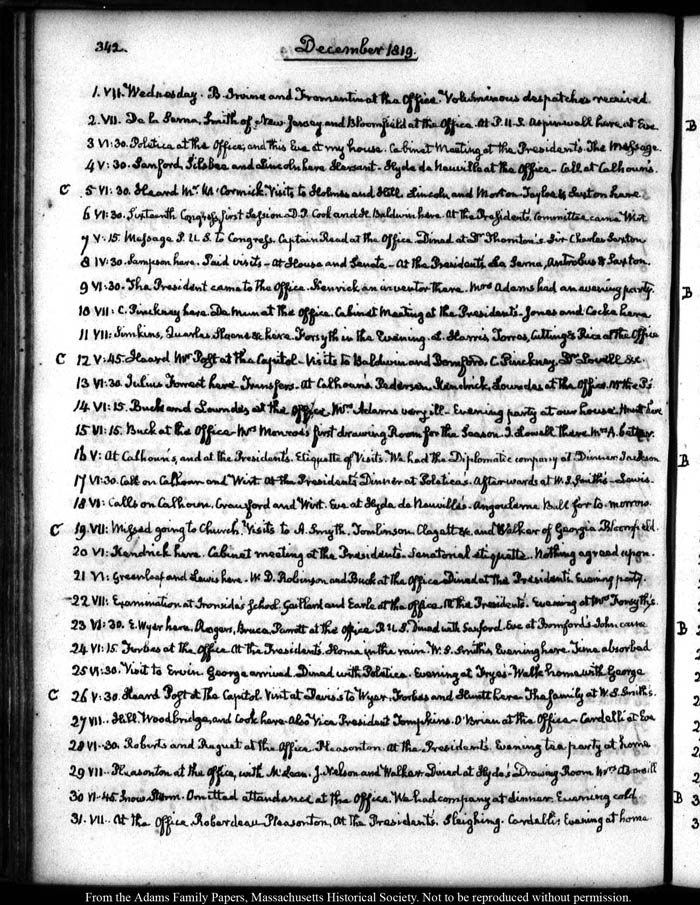 342. December 1819.
1. VII. Wednesday. B. Irvine and Fromentin at the Office. Voluminous despatches received
2. VII. De la Serna, Smith of New Jersey and Bloomfield at the Office. At P.U.S. Aspinwall here at Eve
3 VI:30. Poletica at the Office, and this Eve at my house. Cabinet Meeting at the President's. The Message.
4 V:30. Sanford, Silsbee and Lincoln here. Servant. Hyde de Neuville at the Office - Call at Calhoun's.
C 5 VI:30. Heard Mr. McCormick. Visits to Holmes and Hill. Lincoln and Morton. Taylor & Sexton here
6 VI:30. Sixteenth Congress, first Session. D.P. Cook and H. Baldwin here. At the President's. Committee came. Wirt
7 V:15. Message P.U.S. to Congress. Captain Read at the Office. Dined at Dr. Thornton's. Sir Charles Saxton
8 IV:30. Sampson here. Paid visits - At House and Senate - At the President's. La Serna, Antrobus & Saxton.
9 VI:30. The President came to the Office. Kenrick an inventor there. Mrs Adams had an evening party.
10 VII: C. Pinckney here. De Mun at the Office. Cabinet Meeting at the President's - Jones and Cocke here
11 VII: Simkins, Quarles, Sloane &c here. Forsyth in the Evening. L. Harris, Torres, Cutting & Rice at the Office
C 12 V:45. Heard Mr Post at the Capitol - Visits to Baldwin and Bomford, C. Pinckney, Dr Lovell &c.
13 VI:30. Julius Forrest here. Transfers. At Calhoun's. Pedersen, Kendrick, Lowndes at the Office. At the P's
14 VI:15. Buck and Lowndes at the Office. Mrs. Adams very ill - Evening party at our house. Hunt here
15 VI:15. Buck at the Office - Mrs Monroe's first drawing Room for the Season. J. Lowell there. Mrs A. better.
16 V: At Calhoun's, and at the President's. Etiquette of Visits. We had the Diplomatic company at Dinner. Jackson
17 VI:30. Call on Calhoun and Wirt. At the President's. Dinner at Poletica's. Afterwards at W.S. Smith's - Lewis.
18 VI: Calls on Calhoun, Crawford and Wirt. Eve at Hyde de Neuville's. Angouleme Ball for to-morrow.
C 19 VII: Missed going to Church. Visits to A. Smyth, Tomlinson, Clagett &c, and Walker of Georgia. Bloomfield.
20 VI: Kendrick here. Cabinet meeting at the President's. Senatorial etiquette. Nothing agreed upon.
21 VI: Greenleaf and Lewis here. W.D. Robinson and Buck at the Office. Dined at the President's. Evening party.
22 VII: Examination at Ironside's School. Gaillard and Earle at the Office. At the President's. Evening at Mrs Forsyth's.
23 VI:30. E. Wyer here. Rogers, Bruce, Parrott at the Office. P.U.S. Dined with Sanford. Eve at Bomford's. John came
24 VI:15. Forbes at the Office. At the President's. Home in the rain. W.S. Smith's Evening here. Time absorbed
25 VI:30. Visit to Ervin. George arrived. Dined with Poletica. Evening at Frye's. Walk home with George
C 26 V:30. Heard Post at the Capitol. Visit at Davis's to Wyer. Forbes and Hunt here. The family at W.S. Smith's.
27 VII.. Hill, Woodbridge, and Cook here. Also Vice President Tompkins. O'Brien at the Office - Cardelli at Eve
28 VI-30. Roberts and Raguet at the Office. Pleasonton. At the President's. Evening tea party at home
29 VII.. Pleasonton at the Office, with McLean. J. Nelson and Walker. Dined at Hyde's. Drawing Room. Mrs
30 VI-45. Snow Storm. Omitted attendance at the Office. We had company at dinner. Evening cold
31. VII.. At the Office. Roberdeau. Pleasonton, At the President's. Sleighing. Cardelli. Evening at home
B
B
B
B
B
From the Adams Family Papers, Massachusetts Historical Society. Not to be reproduced without permission.